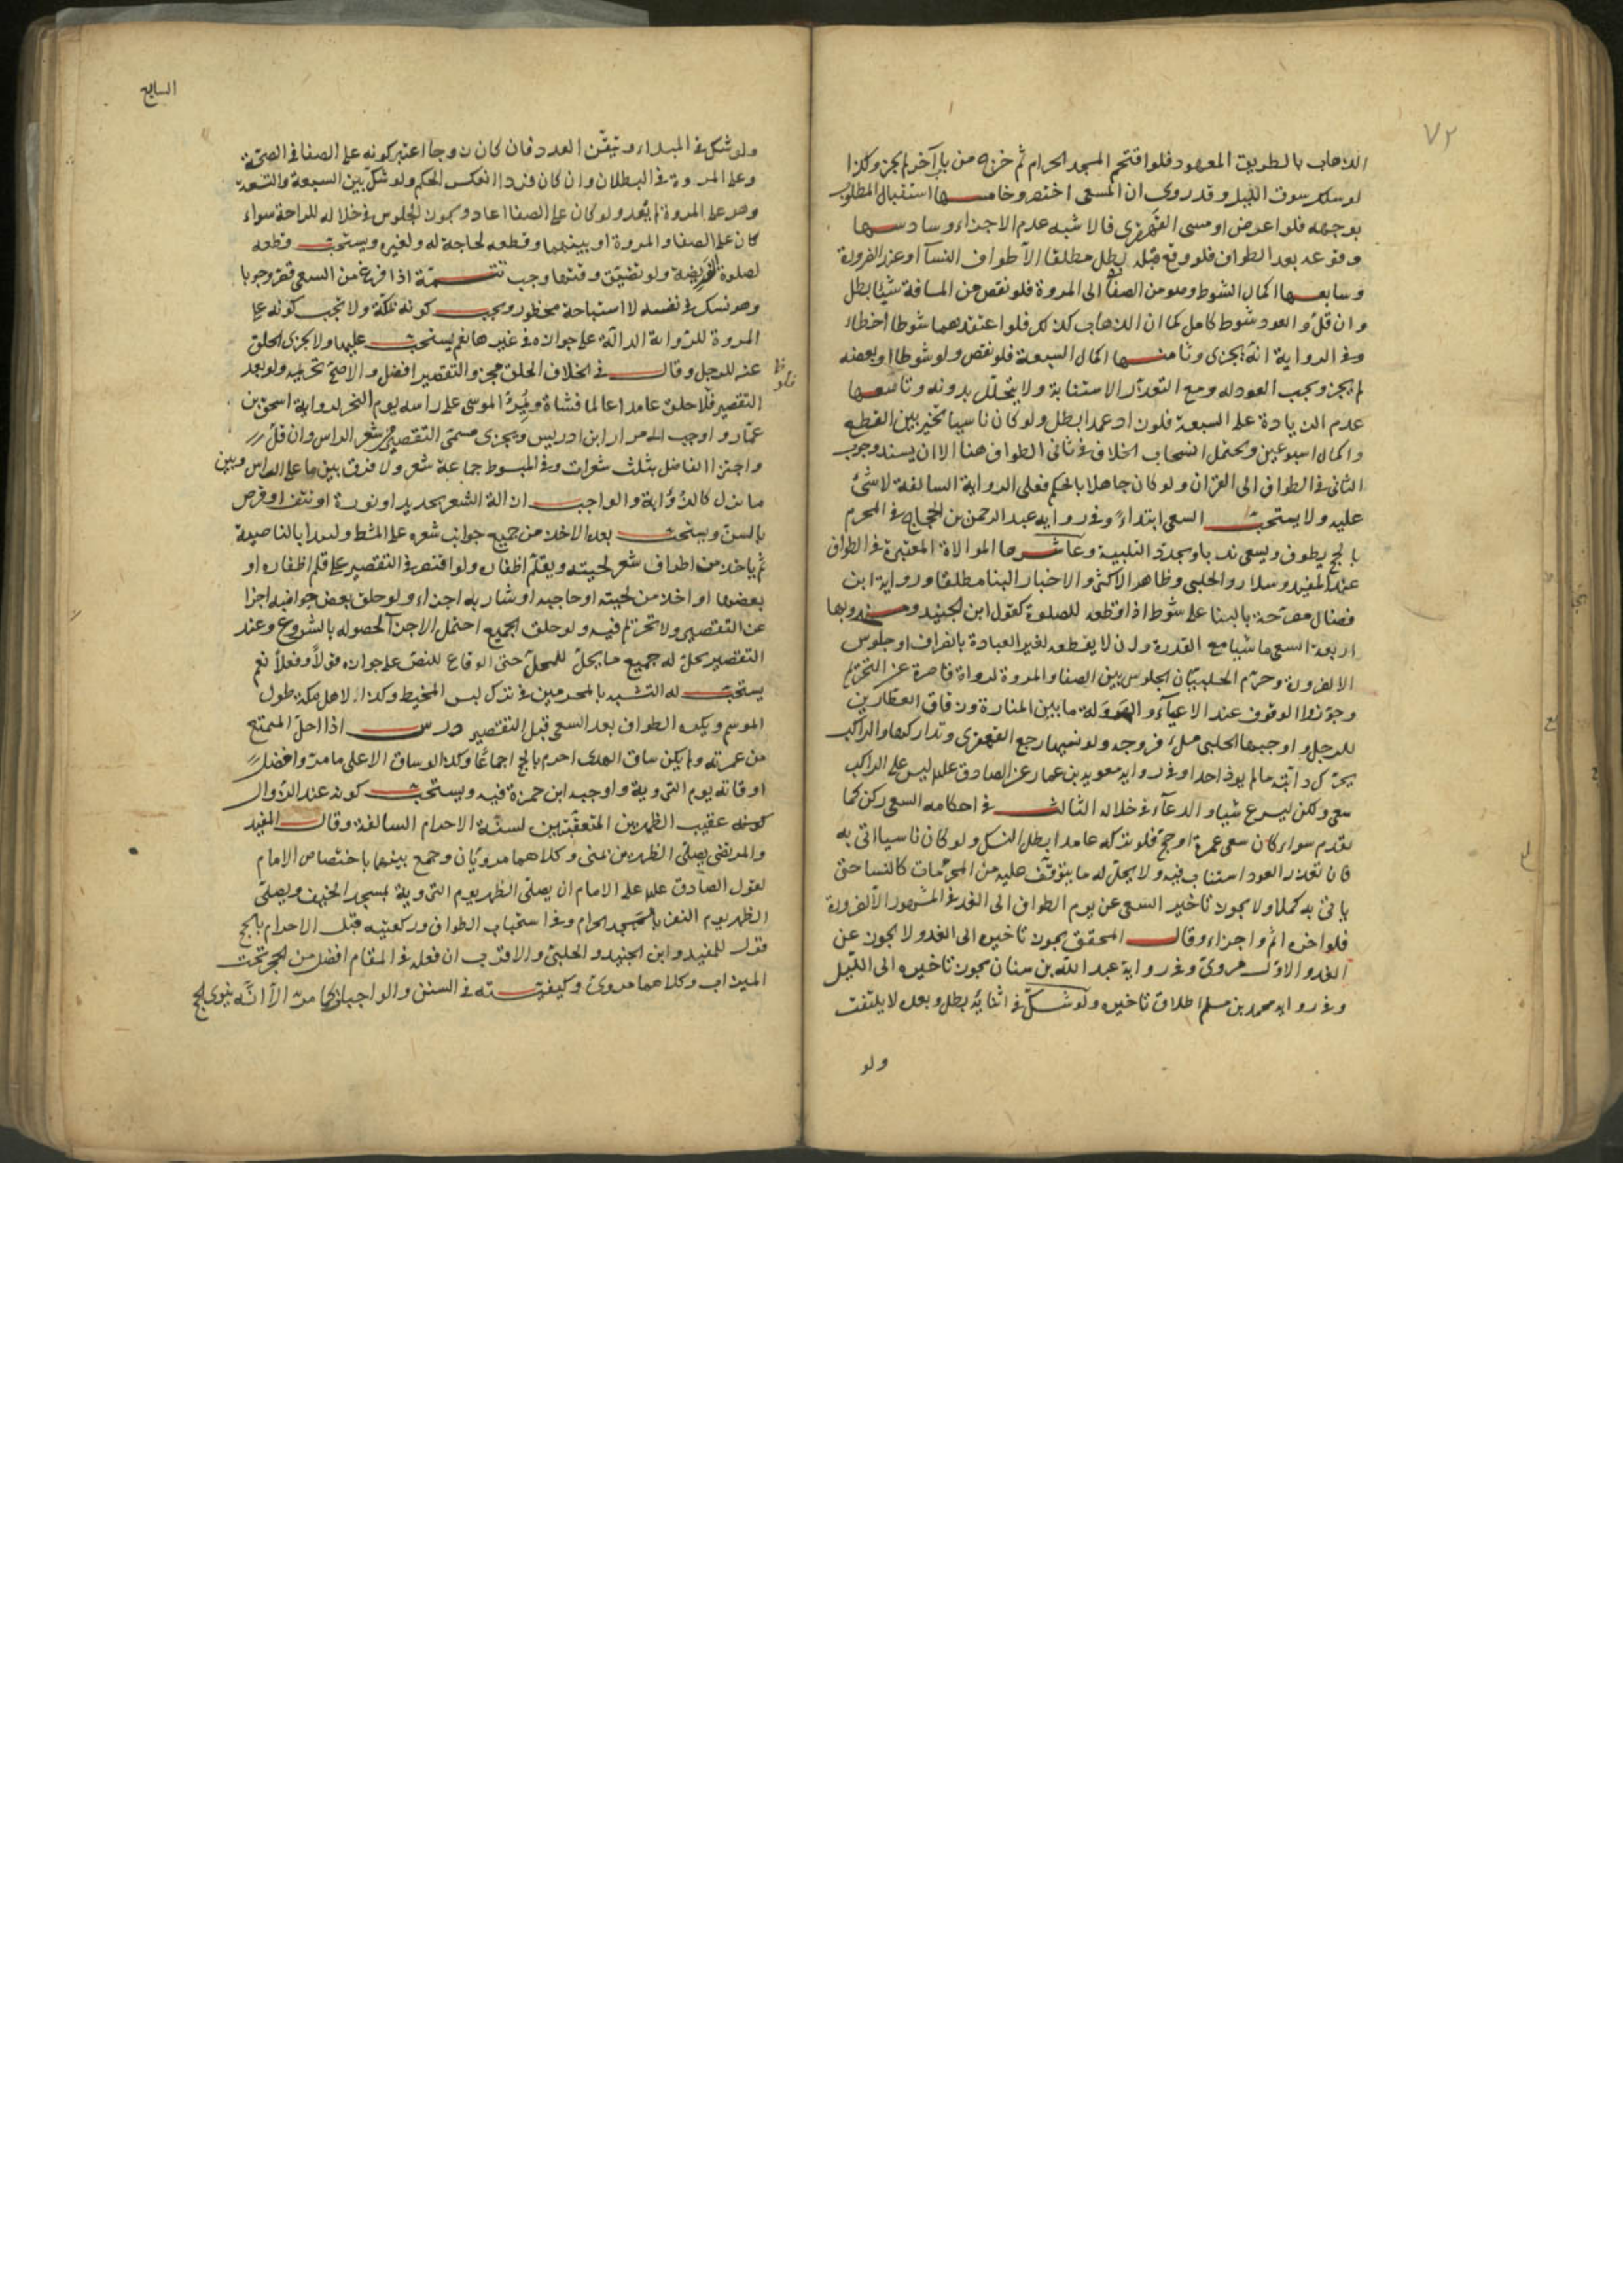 ٧٢
الذهاب بالطريق المعهود فلو اقتحم المسجد الحرام ثم خرج من باب آخر لم يجز وكذا
لو سلك سوق الليل وقد روى ان المسعى اختصر وخامسها استقبال المطلوب
بوجهه فلو اعرض او مشى القهقرى فالاشبه عدم الاجزاء وسادسها
وقوعه بعد الطواف فلو وقع قبله بطل مطلقا الا طواف النسآ او عند الضرورة
وسابعها اكمال الشوط وهو من الصفا الى المروة فلو نقص من المسافة شيئا بطل
وان قل والعود شوط كامل كما ان الذهاب كذلك فلو اعتقدهما شوطا اخطاء
وفي الرواية انه يجزى وثامنها اكمال السبعة فلو نقص ولو شوطا او بعضه
لم يجز ويجب العود له ومع التعذر الاستنابة ولا يتحلل بدونه وتاسعها
عدم الزيادة على السبعة فلو زاد عمدا بطل ولو كان ناسيا تخير بين القطع
واكمال اسبوعين ويحتمل انسحاب الخلاف في ثانى الطواف هنا الا ان يسند وجوب
الثانى في الطواف الى القران ولو كان جاهلا بالحكم فعلى الرواية السالفة لا شئ
عليه ولا يستحب السعى ابتداء وفي رواية عبد الرحمن بن الحجاج في المحرم
بالحج يطوف ويسعى ندبا ويجدد التلبية وعاشرها الموالاة المعتبرة في الطواف
عند المفيد وسلار والحلبى وظاهر الاكثر والاخبار البنا مطلقا ورواية ابن
فضال مصرحة بالبنا على شوط اذا قطعه للصلوة كقول ابن الجنيد ومندوبها
اربعة السعى ماشيا مع القدرة وان لا يقطعه لغير العبادة بالفراف او جلوس
الا لضرورة وحرم الحلبيان الجلوس بين الصفا والمروة لرواة قاصرة عن التحريم
وجوزوا الوقوف عند الاعياء والهرولة ما بين المنارة وزقاق العطارين
للرجل واوجبها الحلبى ملء فروجه ولو نسيها رجع القهقرى وتداركها والراكب
يحرك دابته ما لم يوذ احدا وفي رواية معوية بن عمار عن الصادق علم ليس على الراكب
سعى ولكن ليسرع شيا والدعآء في خلاله الثالث في احكامه السعى ركن كما
تقدم سواء كان سعى عمرة او حج فلو تركه عامدا بطل النسك ولو كان ناسيا اتى به
فان تعذر العود استناب فيه ولا يحل له ما يتوقف عليه من المحرمات كالنسا حتى
ياتى به كملا ولا يجوز تاخير السعى عن يوم الطواف الى الغد في المشهور الا لضرورة
فلو اخره اثم واجزاء وقال المحقق يجوز تاخيره الى الغد ولا يجوز عن
الغد والاول مروى وفي رواية عبد الله بن سنان يجوز تاخيره الى الليل
وفي رواية محمد بن مسلم اطلاق تاخيره ولو شك في اثنائه بطل وبعده لا يلتفت
ولو
السابع
ولو شك في المبداء وتيقن العدد فان كان زوجا اعتبر كونه على الصفا في الصحة
وعلى المروة في البطلان وان كان فردا انعكس الحكم ولو شك بين السبعة والتسعة
وهو على المروة لم يعد ولو كان على الصفا اعاد ويجوز الجلوس في خلاله للراحة سواء
كان على الصفا والمروة او بينهما وقطعه لحاجة له ولغيره ويستحب قطعه
لصلوة الفريضة ولو تضيق وقتها وجب تتمة اذا فرغ من السعى قصر وجوبا
وهو نسك في نفسه لا استباحة محظور ويجب كونه بمكة ولا يجب كونه على
المروة للرواية الدالة على جوازه في غيرها نعم يستحب عليها ولا يجزى الحلق
عنه للرجل وقال في الخلاف الحلق مجز والتقصير افضل والاصح تحريمه ولو بعد
التقصير فلو حلق عامدا عالما فشاة ويمر الموسى على راسه يوم النحر لرواية اسحق بن
عمار واوجب الامرار ابن ادريس ويجزى مسمى التقصير من شعر الراس وان قل
واجتزا الفاضل بثلث شعرات وفي المبسوط جماعة شعر ولا فرق بين ما على الراس وبين
ما نزل كالذؤابة والواجب ازالة الشعر بحديد او نورة او نتف او قرض
بالسن ويستحب بعد الاخذ من جميع جوانب شعره على المشط وليبدا بالناصية
ثم ياخذ من اطراف شعر لحيته ويقلم اظفاره ولو اقتصر في التقصير على قلم اظفاره او
بعضها او اخذ من لحيته او حاجبه او شاربه اجزاء ولو حلق بعض جوانبه اجزا
عن التقصير ولا تحريم فيه ولو حلق الجميع احتمل الاجزآ لحصوله بالشروع وعند
التقصير يحل له جميع ما يحل للمحل حتى الوقاع للنص على جوازه قولا وفعلا نعم
يستحب له التشبه بالمحرمين في ترك لبس المخيط وكذا لاهل مكة طول
الموسم ويكره الطواف بعد السعى قبل التقصير درس اذا احل المتمتع
من عمرته ولم يكن ساق الهدى احرم بالحج اجماعا وكذا لو ساق الا على ما مر وافضل
اوقاته يوم التروية واوجبه ابن حمزة فيه ويستحب كونه عند الزوال
كونه عقيب الظهرين المتعقبتين لسنة الاحرام السالفة وقال المفيد
والمرتضى يصلى الظهرين بمنى وكلاهما مرويان وجمع بينهما باختصاص الامام
لقول الصادق علم على الامام ان يصلى الظهر يوم التروية بمسجد الخيف ويصلى
الظهر يوم النفر بالمسجد الحرام وفي استحباب الطواف وركعتيه قبل الاحرام بالحج
قول للمفيد وابن الجنيد والحلبى والاقرب ان فعله في المقام افضل من الحجر تحت
الميزاب وكلاهما مروى وكيفيته في السنن والواجبات كما مر الا انه ينوى الحج